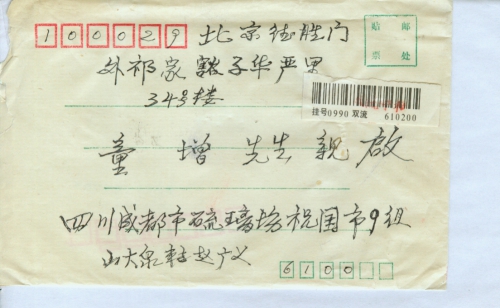 100029 北京德胜门
邮
贴
票 处
外祁家豁子华严里
34号楼
挂号0990 双流 610200
童 增 先生 亲 启
四川成都市硫璃场祝国市9组
山大泉转赵广义
6100